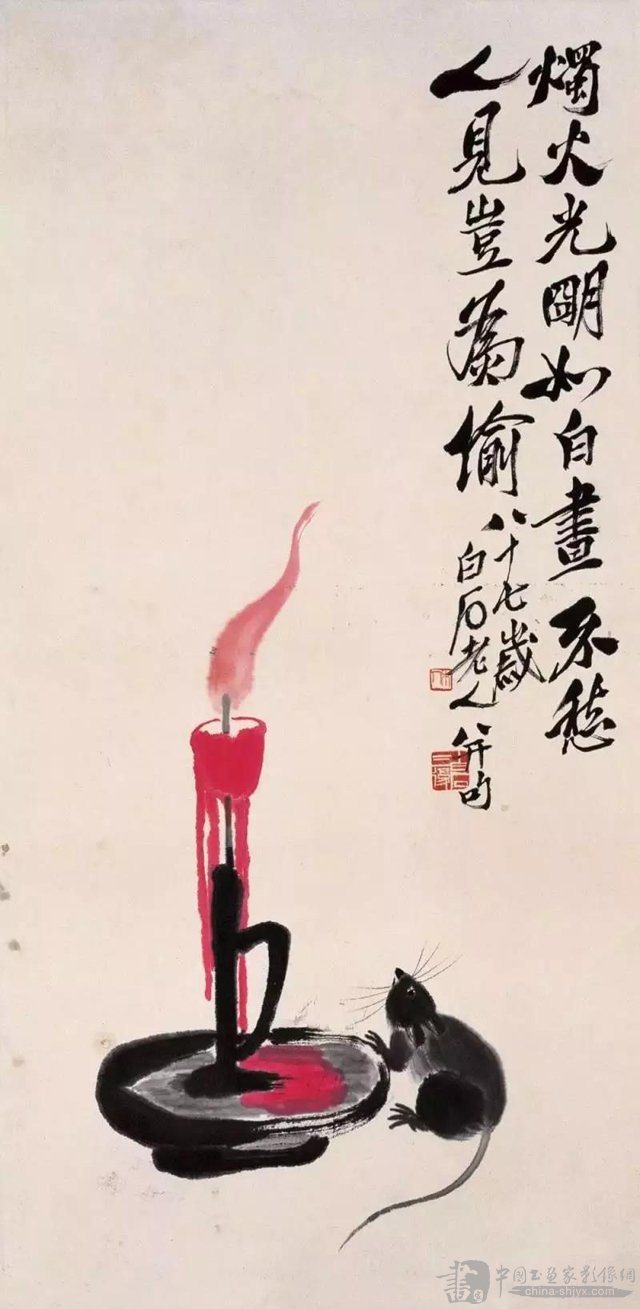 燭火光明如白晝不愁
人見豈為偷
八十七歲
白石老人并句
中国书画家影像網
china-shjyx.com